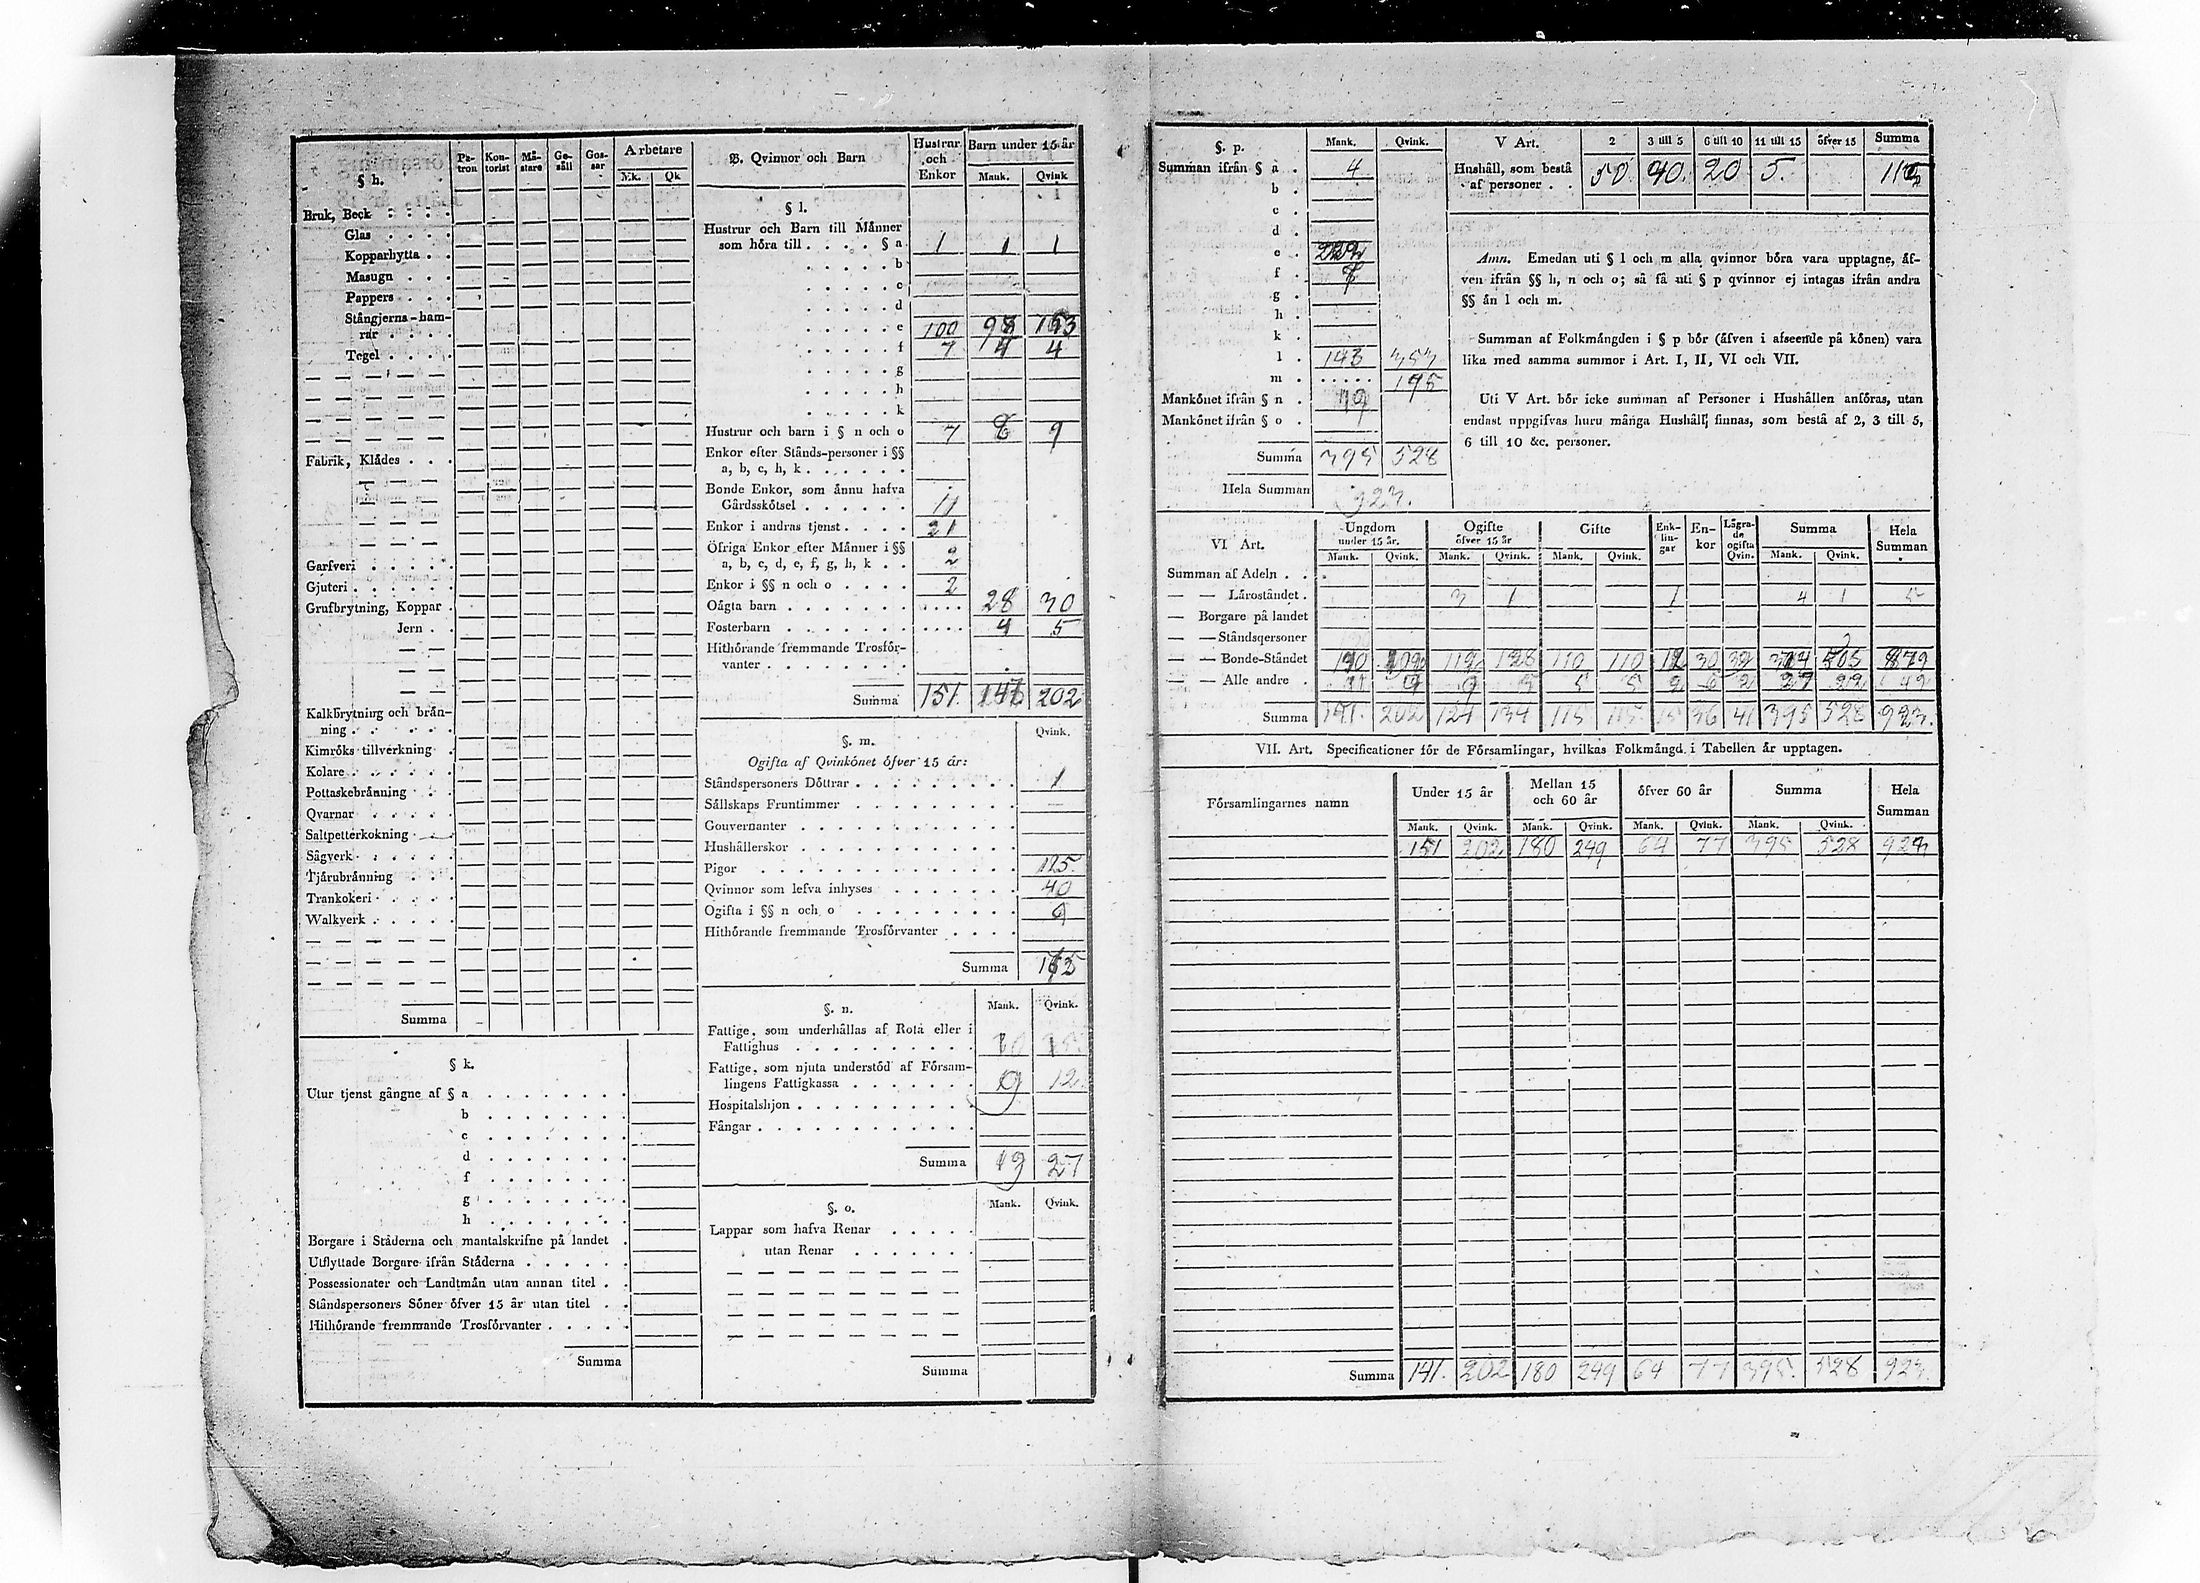 § h.
Pa-tron Kon-torist Mä-stare Ge-säll Gos-sar Arbetare
Mk. Qk
Bruk, Beck
Glas
Kopparhytta
Masugn
Pappers
Stångjerns-ham-
rar
Tegel
Fabrik, Klädes
Garfveri
Gjuteri
Grufbrytning, Koppar
Jern
Kalkbrytning och brän-
ning
Kimröks tillverkning
Kolare
Pottaskebränning
Qvarnar
Saltpetterkokning
Sågverk
Tjärubränning
Trankokeri
Walkverk
Summa
§ k.
Utur tjenst gångne af § a
b
c
d
f
g
h
Borgare i Städerna och mantalskrifne på landet
Utflyttade Borgare ifrån Städerna
Possessionater och Landtmän utan annan titel
Ståndspersoners Söner öfver 15 år utan titel
Hithörande fremmande Trosförvanter
Summa
B. Qvinnor och Barn Hustrur och Enkor Barn under 15 år
Mank. Qvink
§ l.
Hustrur och Barn till Männer
som höra till § a 1 1 1
b
c
d
e 100 153
f 7 4 4
g
h
k
Hustrur och barn i § n och o 7 9
Enkor efter Stånds-personer i §§
a, b, c, h, k
Bonde Enkor, som ännu hafva
Gårdsskötsel 11
Enkor i andras tjenst 21
Öfriga Enkor efter Männer i §§
a, b, c, d, e, f, g, h, k 2
Enkor i §§ n och o 2
Oägta barn 28 30
Fosterbarn 4 5
Hithörande fremmande Trosför-
vanter
Summa 151. 202
§. m. Qvink.
Ogifta af Qvinkönet öfver 15 år:
Ståndspersoners Döttrar 1
Sällskaps Fruntimmer
Gouvernanter
Hushållerskor
Pigor 125.
Qvinnor som lefva inhyses 40
Ogifta i §§ n och o 9
Hithörande fremmande Trosförvanter
Summa
§. n. Mank. Qvink.
Fattige, som underhållas af Rota eller i
Fattighus 10 15
Fattige, som njuta understöd af Försam-
lingens Fattigkassa 9 12.
Hospitalshjon
Fångar
Summa 19 27
§. o. Mank. Qvink.
Lappar som hafva Renar
utan Renar
Summa
§. p. Mank. Qvink.
Summan ifrån § a 4
b
c
d
e
f
g
h
k
l 143 353
m 195
Mankönet ifrån § n 19
Mankönet ifrån § o
Summa 395 528
Hela Summan 923.
V Art. 2 3 till 5 6 till 10 11 till 15 öfver 15 Summa
Hushåll, som bestå
af personer 50 40. 20 5. 115
Anm. Emedan uti § l och m alla qvinnor böra vara upptagne, äf-
ven ifrån §§ h, n och o; så få uti § p qvinnor ej intagas ifrån andra
§§ än l och m.
Summan af Folkmängden i § p bör (äfven i afseende på könen) vara
lika med samma summor i Art. I, II, VI och VII.
Uti V Art. bör icke summan af Personer i Hushållen anföras, utan
endast uppgifvas huru många Hushåll finnas, som bestå af 2, 3 till 5,
6 till 10 &c. personer.
VI Art. Ungdom under 15 år. Ogifte öfver 15 år Gifte Enk-lin-gar En-kor Lägra-de ogifta Qvin. Summa Hela Summan
Mank. Qvink. Mank. Qvink. Mank. Qvink. Mank. Qvink.
Summan af Adeln
— — Läroståndet 3 1 1 4 1 5
— Borgare på landet
— — Ståndspersoner
— — Bonde-Ståndet 112 128 110 110 12 30 505 879
— — Alle andre 11 9 9 5 5 5 2 6 2 27 22 49
Summa 141. 202 124 134 115 115. 15 36 41 395 528 923.
VII. Art. Specificationer för de Församlingar, hvilkas Folkmängd i Tabellen är upptagen.
Församlingarnes namn Under 15 år Mellan 15 och 60 år öfver 60 år Summa Hela Summan
Mank. Qvink. Mank. Qvink. Mank. Qvink. Mank. Qvink.
151 202 180 249 64 77 395 528 923
Summa 141. 202 180 249 64 77 395. 528 923.